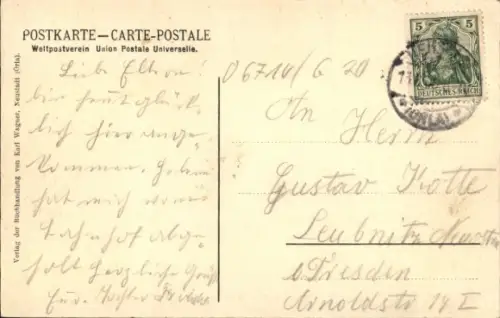 POSTKARTE—CARTE-POSTALE
Weltpostverein Union Postale Universelle.
Verlag der Buchhandlung von Karl Wagner, Neustadt (Orla).
Liebe Eltern!
bin heut glück-
lich hier ange-
kommen.
hat mich vom
Bahnhof abge-
holt herzliche Grüße
Eure Tochter
06714/G 20
5 5
DEUTSCHES REICH
(ORLA)
An Herrn
Gustav Kotte
Leubnitz Neuostra
b/Dresden
Arnoldstr 14 I